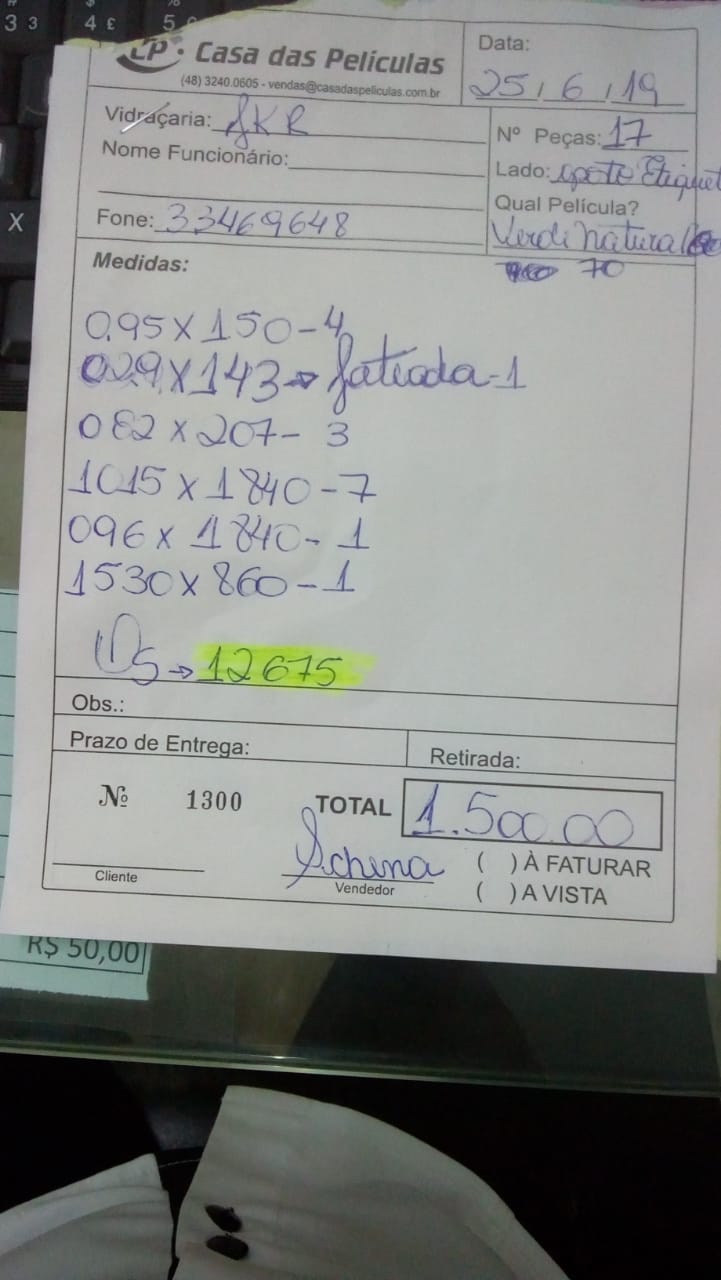 3 3 4 £ 5
%
CP Casa das Películas
(48) 3240.0605 - vendas@casadaspeliculas.com.br
Data:
25/6/19
Vidraçaria: JKR
Nº Peças: 17
Nome Funcionário:
Lado: oposto Etiquet
Qual Película?
Fone: 33469648
Verdi natural
70
X
Medidas:
0.95 X 150 - 4
029 X 143 → fatiada - 1
082 X 207 - 3
1015 X 1840 - 7
096 X 1840 - 1
1530 X 860 - 1
→ 12675
Obs.:
Prazo de Entrega:
Retirada:
Nº 1300 TOTAL 1.500.00
( ) À FATURAR
Cliente
Vendedor
( ) A VISTA
R$ 50,00